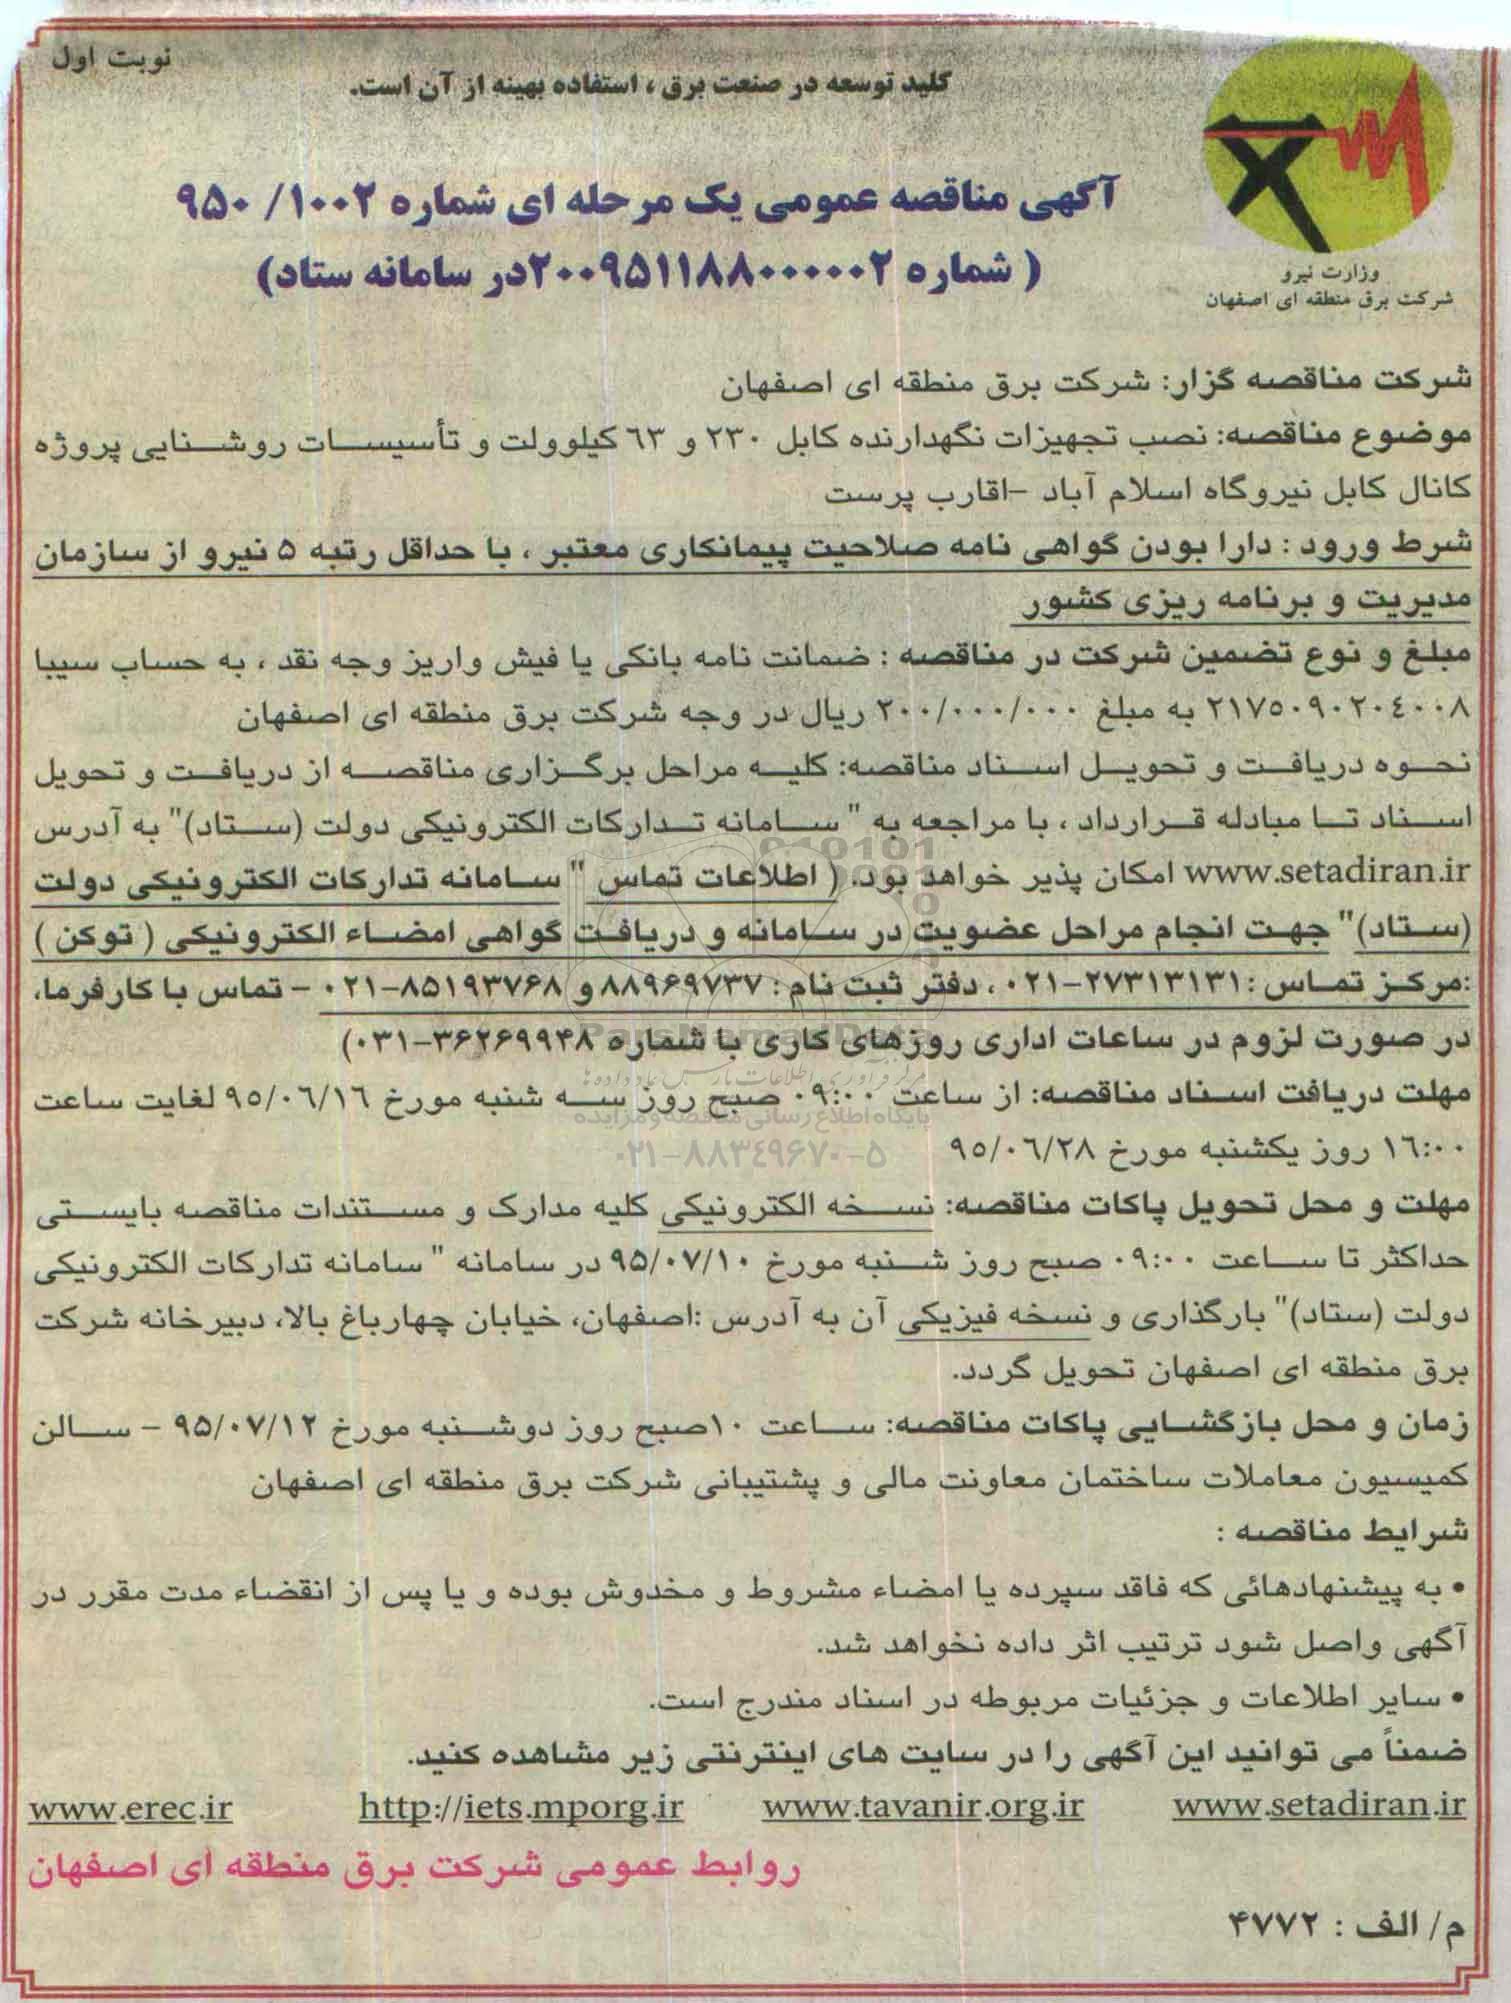 نوبت اول
کلید توسعه در صنعت برق ، استفاده بهینه از آن است.
آگهی مناقصه عمومی یک مرحله ای شماره ۱۰۰۲/ ۹۵۰
( شماره ۲۰۰۹۵۱۱۸۸۰۰۰۰۰۲در سامانه ستاد)
وزارت نیرو
شرکت برق منطقه ای اصفهان
شرکت مناقصه گزار: شرکت برق منطقه ای اصفهان
موضوع مناقصه: نصب تجهیزات نگهدارنده کابل ۲۳۰ و ۶۳ کیلوولت و تأسیسات روشنایی پروژه
کانال کابل نیروگاه اسلام آباد –اقارب پرست
شرط ورود : دارا بودن گواهی نامه صلاحیت پیمانکاری معتبر ، با حداقل رتبه ۵ نیرو از سازمان
مدیریت و برنامه ریزی کشور
مبلغ و نوع تضمین شرکت در مناقصه : ضمانت نامه بانکی یا فیش واریز وجه نقد ، به حساب سیبا
۲۱۷۵۰۹۰۲۰۴۰۰۸ به مبلغ ۲۰۰/۰۰۰/۰۰۰ ریال در وجه شرکت برق منطقه ای اصفهان
نحوه دریافت و تحویل اسناد مناقصه: کلیه مراحل برگزاری مناقصه از دریافت و تحویل
اسناد تا مبادله قرارداد ، با مراجعه به " سامانه تدارکات الکترونیکی دولت (ستاد)" به آدرس
www.setadiran.ir امکان پذیر خواهد بود. ( اطلاعات تماس " سامانه تدارکات الکترونیکی دولت
(ستاد)" جهت انجام مراحل عضویت در سامانه و دریافت گواهی امضاء الکترونیکی ( توکن )
:مرکز تماس :۲۷۳۱۳۱۳۱-۰۲۱ ، دفتر ثبت نام : ۸۸۹۶۹۷۳۷ و ۸۵۱۹۳۷۶۸-۰۲۱ - تماس با کارفرما،
در صورت لزوم در ساعات اداری روزهای کاری با شماره ۳۶۲۶۹۹۴۸-۰۳۱)
مهلت دریافت اسناد مناقصه: از ساعت ۰۹:۰۰ صبح روز سه شنبه مورخ ۹۵/۰۶/۱۶ لغایت ساعت
۱۶:۰۰ روز یکشنبه مورخ ۹۵/۰۶/۲۸
مهلت و محل تحویل پاکات مناقصه: نسخه الکترونیکی کلیه مدارک و مستندات مناقصه بایستی
حداکثر تا ساعت ۰۹:۰۰ صبح روز شنبه مورخ ۹۵/۰۷/۱۰ در سامانه " سامانه تدارکات الکترونیکی
دولت (ستاد)" بارگذاری و نسخه فیزیکی آن به آدرس :اصفهان، خیابان چهارباغ بالا، دبیرخانه شرکت
برق منطقه ای اصفهان تحویل گردد.
زمان و محل بازگشایی پاکات مناقصه: ساعت ۱۰صبح روز دوشنبه مورخ ۹۵/۰۷/۱۲ - سالن
کمیسیون معاملات ساختمان معاونت مالی و پشتیبانی شرکت برق منطقه ای اصفهان
شرایط مناقصه :
• به پیشنهادهائی که فاقد سپرده یا امضاء مشروط و مخدوش بوده و یا پس از انقضاء مدت مقرر در
آگهی واصل شود ترتیب اثر داده نخواهد شد.
• سایر اطلاعات و جزئیات مربوطه در اسناد مندرج است.
ضمناً می توانید این آگهی را در سایت های اینترنتی زیر مشاهده کنید.
www.setadiran.ir www.tavanir.org.ir http://iets.mporg.ir www.erec.ir
روابط عمومی شرکت برق منطقه ای اصفهان
م/ الف : ۴۷۷۲
پایگاه اطلاع رسانی مناقصه و مزایده
۰۲۱-۸۸۳۴۹۶۷۰-۵